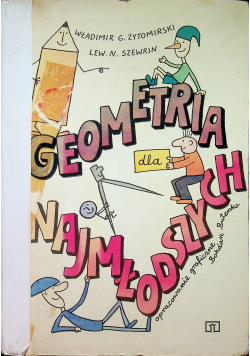 WŁADIMIR G. ŻYTOMIRSKI
LEW. N. SZEWRIN
GEOMETRIA
dla
NAJMŁODSZYCH
opracowanie graficzne Bohdan Butenko